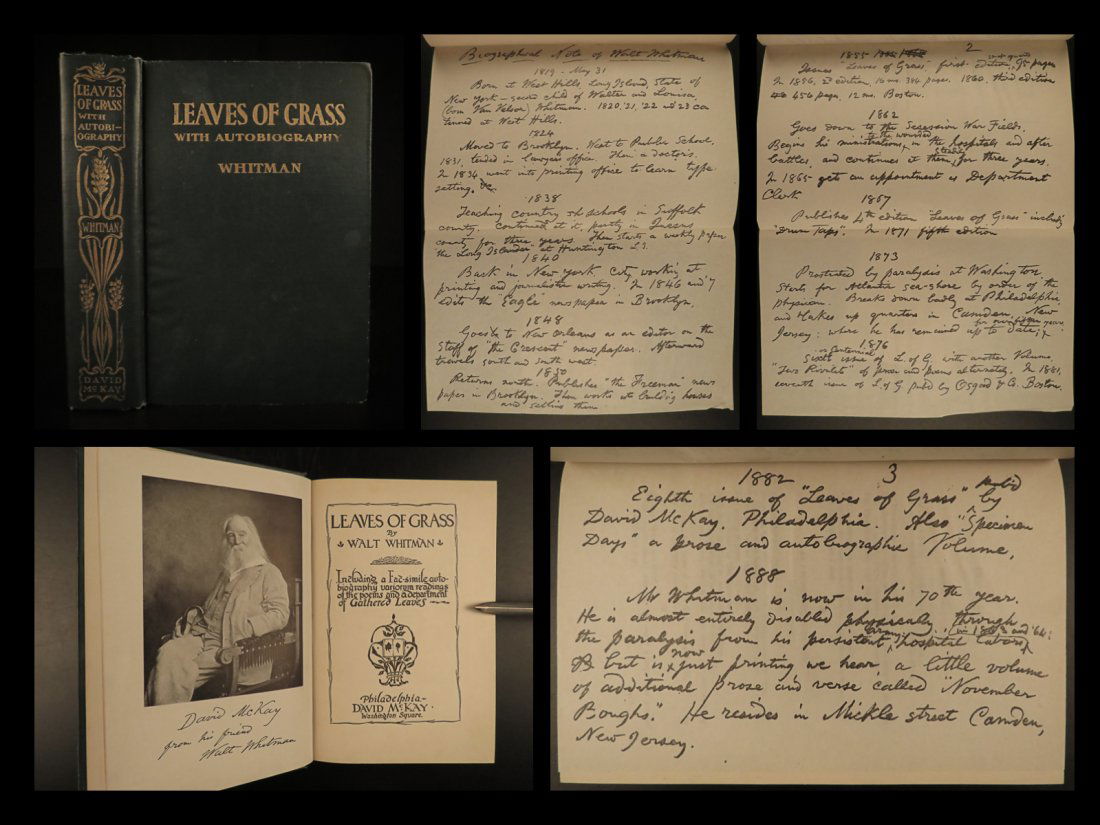 LEAVES
OF GRASS
WITH
AUTOBI-
OGRAPHY
WHITMAN
DAVID
McKAY
LEAVES OF GRASS
WITH AUTOBIOGRAPHY
WHITMAN
Biographical Note of Walt Whitman
1819 - May 31
Born at West Hills, Long Island, State of
New York — second child of Walter and Louisa,
(born Van Velsor) Whitman. 1820, '21, '22 and 23 con
tinued at West Hills.
1824
Moved to Brooklyn. Went to Public School.
1831, tended in lawyer's office. Then a doctor's.
In 1834 went into printing office to learn type
setting, &c.
1838
Teaching country schools in Suffolk
county. Continued at it, partly in Queens
county for three years. Then starts a weekly paper
the Long Islander at Huntington L.I.
1840
Back in New York city, working at
printing and journalistic writing. In 1846 and '7
edits the "Eagle" newspaper in Brooklyn.
1848
Goes to New Orleans as an editor on the
staff of "the Crescent" newspaper. Afterward
travels south and south west.
1850
Returns north. Publishes "the Freeman" news
paper in Brooklyn. Then works at building houses
and selling them
2
1855
Issues "Leaves of Grass" first edition, 95 pages
In 1856, 2d edition, 16 mo. 384 pages. 1860, third edition
456 pages, 12 mo. Boston.
1862
Goes down to the Secession War Fields.
Begins his ministrations to the wounded in the hospitals and after
battles, and continues at them steadily for three years.
In 1865 gets an appointment as Department
Clerk
1867
Publishes 4th edition "Leaves of Grass" includ'g
"Drum Taps". In 1871 fifth edition
1873
Prostrated by paralysis at Washington.
Starts for Atlantic sea-shore by order of the
physician. Breaks down badly at Philadelphia,
and takes up quarters in Camden, New
Jersey; where he has remained up to date,
1876
Sixth or Centennial issue of L of G, with another Volume,
"Two Rivulets" of prose and poems alternately. In 1881,
seventh issue of L of G pub'd by Osgood & Co. Boston.
David McKay
from his friend
Walt Whitman
LEAVES OF GRASS
By
WALT WHITMAN
Including a Fac-simile auto-
biography variorum readings
of the poems and a department
of Gathered Leaves
Philadelphia
DAVID McKAY
Washington Square.
1882 3
Eighth issue of "Leaves of Grass" pub'd by
David McKay, Philadelphia. Also "Specimen
Days" a prose and autobiographic Volume.
1888
Mr Whitman is now in his 70th year.
He is almost entirely disabled physically through
the paralysis from his persistent army hospital labors in 1863 and '64:
but is now just printing we hear a little volume
of additional prose and verse called "November
Boughs." He resides in Mickle street Camden,
New Jersey.